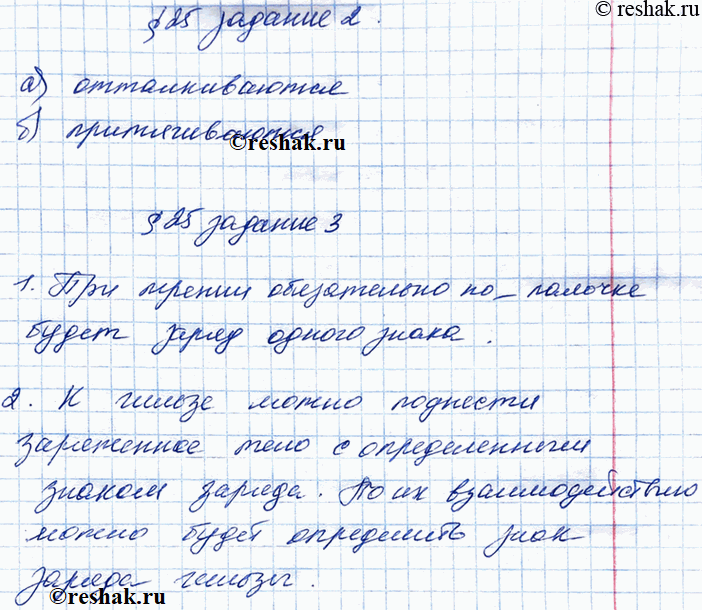 ©reshak.ru
§25 задание 2.
а) отталкиваются
б) притягиваются
©reshak.ru
§25 задание 3
1. При трении обязательно по_ палочке
будет заряд одного знака.
2. К гильзе можно поднести
заряженное тело с определенным
знаком заряда. По их взаимодействию
можно будет определить знак
заряда гильзы.
©reshak.ru